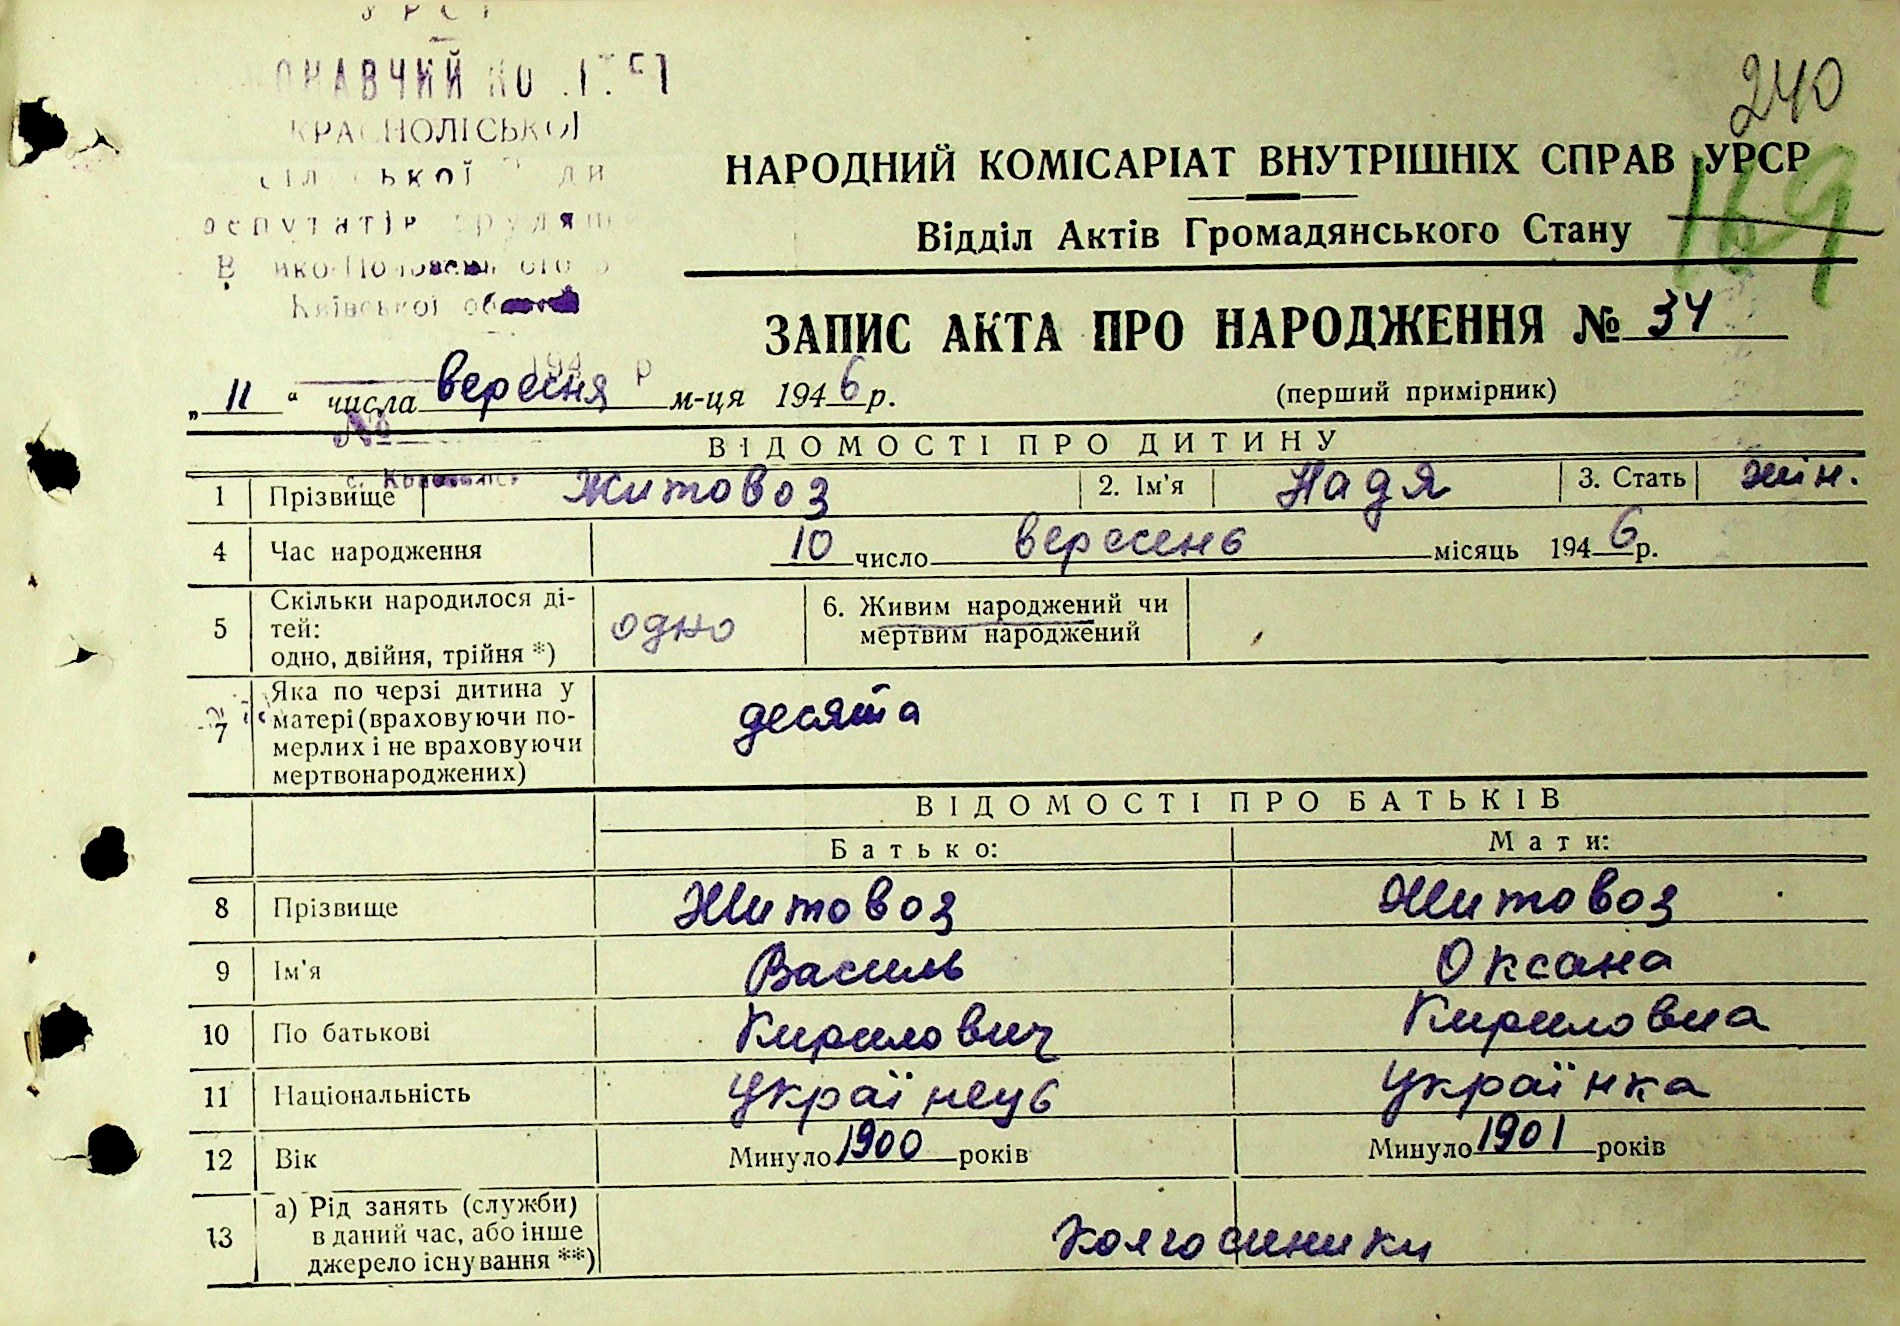 УРСР
КРАСНОЛІСЬКОЇ
Київської
240
НАРОДНИЙ КОМІСАРІАТ ВНУТРІШНІХ СПРАВ УРСР
169
Відділ Актів Громадянського Стану
ЗАПИС АКТА ПРО НАРОДЖЕННЯ № 34
194 р
„ 11 “ числа вересня м-ця 1946 р.
(перший примірник)
№
ВІДОМОСТІ ПРО ДИТИНУ
1 Прізвище Житовоз 2. Ім'я Надя 3. Стать жін.
4 Час народження 10 число вересень місяць 1946 р.
5 Скільки народилося ді-
тей:
одно, двійня, трійня *)
одно
6. Живим народжений чи
мертвим народжений
7 Яка по черзі дитина у
матері (враховуючи по-
мерлих і не враховуючи
мертвонароджених)
десята
ВІДОМОСТІ ПРО БАТЬКІВ
Батько: Мати:
8 Прізвище Житовоз Житовоз
9 Ім'я Василь Оксана
10 По батькові Кирилович Кириловна
11 Національність Українець Українка
12 Вік Минуло 1900 років Минуло 1901 років
13 а) Рід занять (служби)
в даний час, або інше
джерело існування **)
Колгоспники